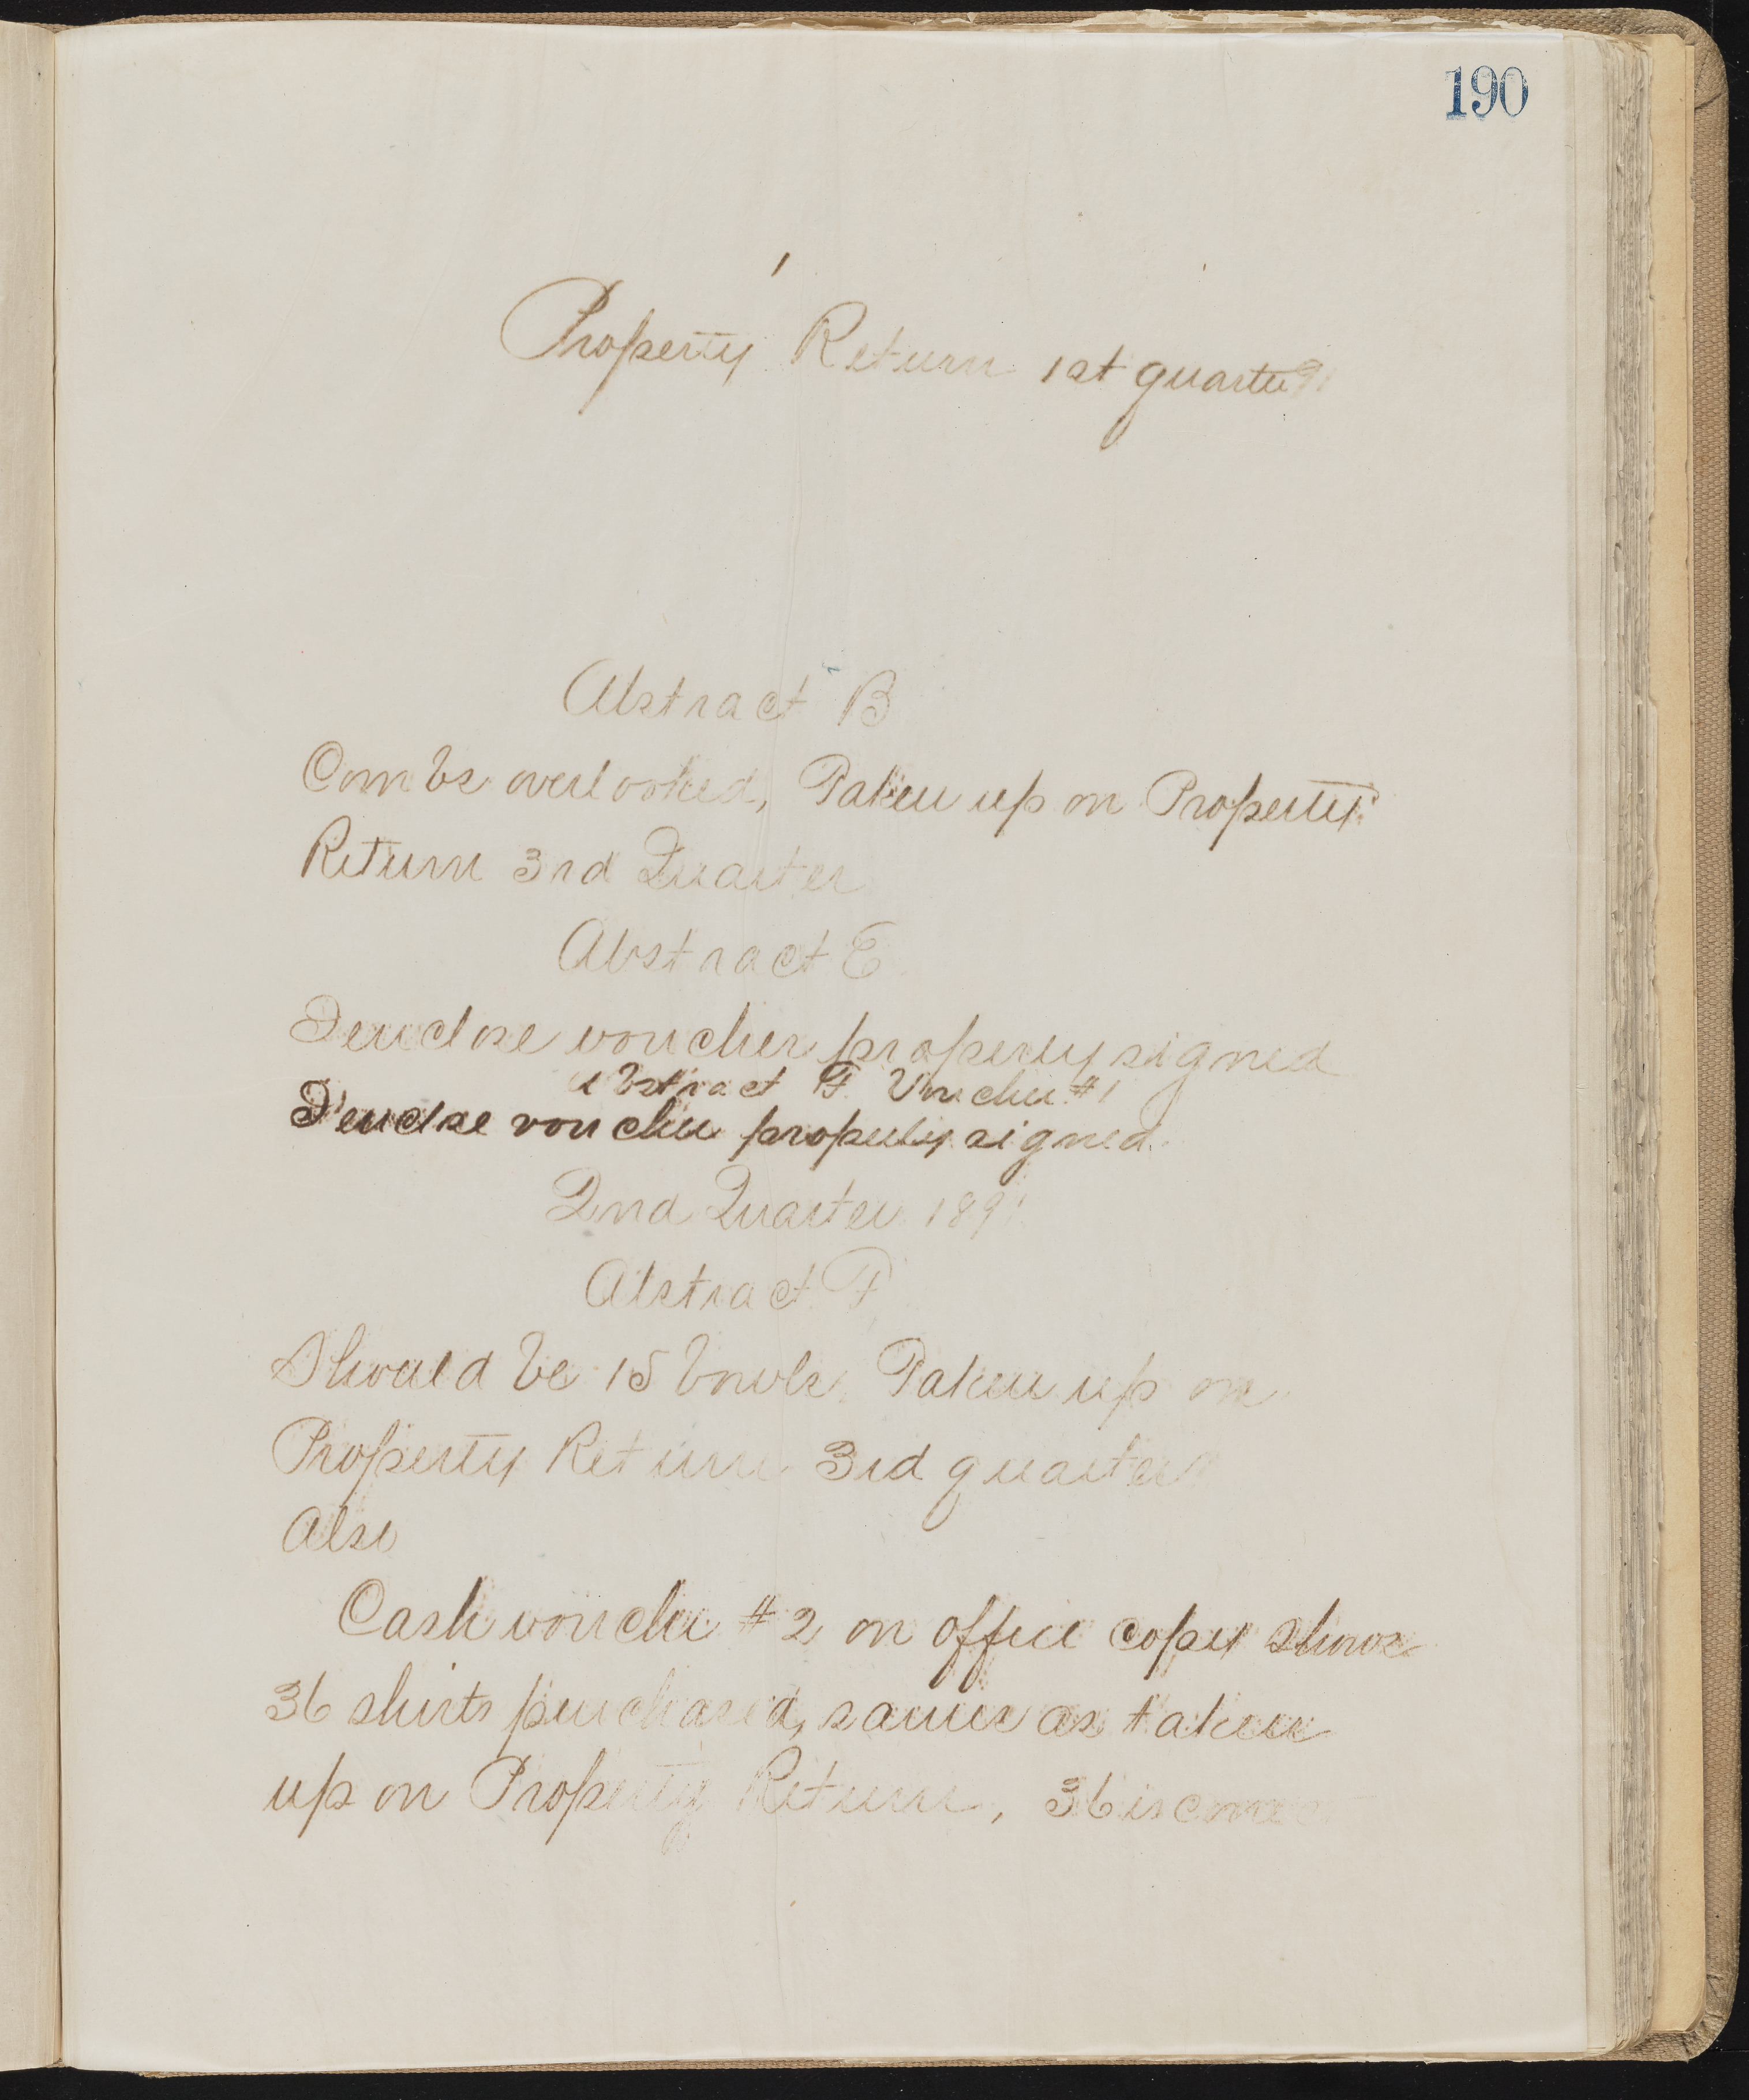 190
Property Return 1st quarter 91
Abstract B
Combs overlooked, Taken up on Property
Return 3rd Quarter
Abstract E
I enclose voucher properly signed
Abstract F. Voucher #1
I enclose voucher properly signed.
2nd Quarter 1891
Abstract F
Should be 15 bowls. Taken up on
Property Return 3rd quarter
Also
Cash voucher #2 on office copy shows
36 shirts purchased, same as taken
up on Property Return, 36 is correct